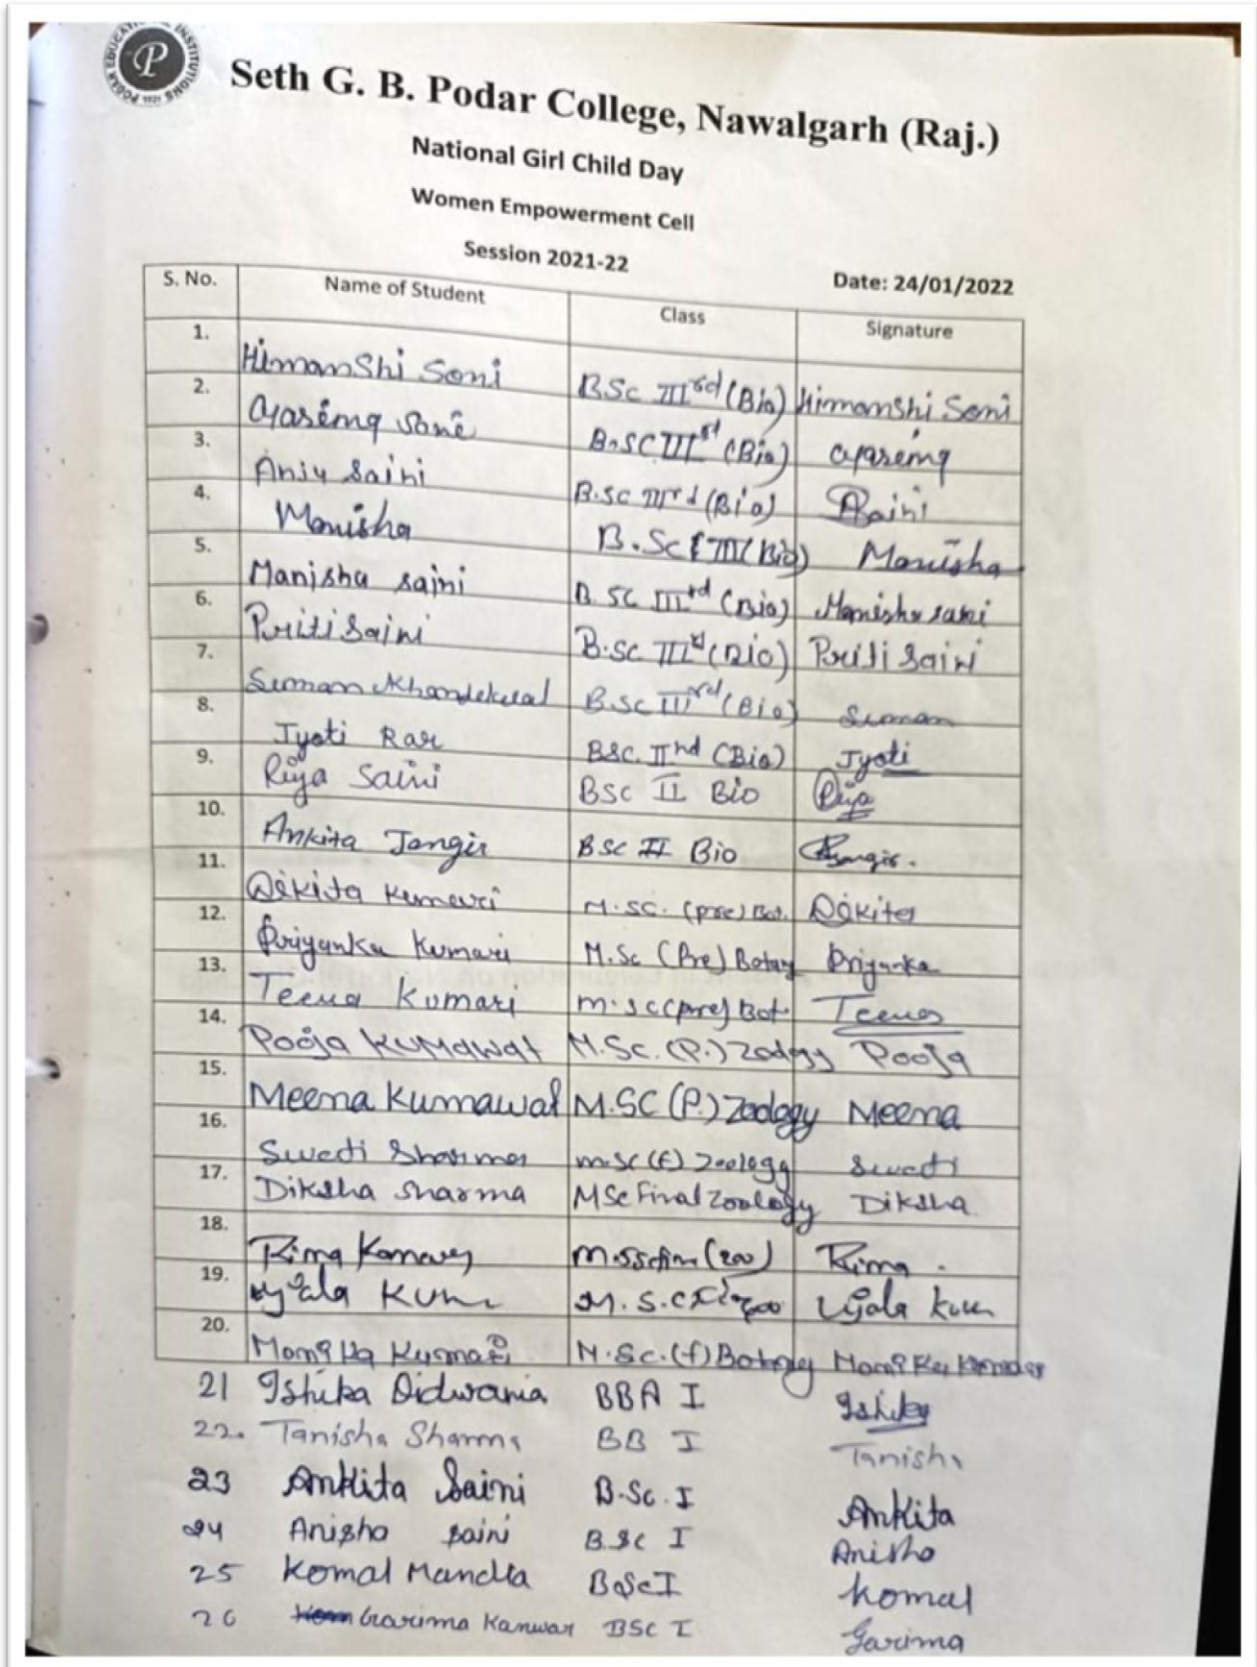 PODAR EDUCATIONAL INSTITUTIONS
P
1921
Seth G. B. Podar College, Nawalgarh (Raj.)
National Girl Child Day
Women Empowerment Cell
Session 2021-22
Date: 24/01/2022
S. No. Name of Student Class Signature
1. Himanshi Soni BSc IIIrd (Bio) Himanshi Soni
2. B.SC III (Bio)
3. Anju Saini B.sc IIIrd (Bio) Saini
4. Manisha B.Sc III (Bio) Manisha
5. Manisha saini B.SC IIIrd (Bio) Manisha saini
6. Priti Saini B.Sc IIIrd (Bio) Priti Saini
7. Suman Khandelwal B.Sc IIIrd (Bio) Suman
8. Jyoti Rar BSc. IInd (Bio) Jyoti
9. Riya Saini BSC II Bio Riya
10. Ankita Jangir BSC II Bio
11. Dikita Kumari M.SC. (pre) Bot. Dikita
12. Priyanka Kumari M.Sc (Pre) Botany Priyanka
13. Teena Kumari M.Sc (pre) Bot Teena
14. Pooja Kumawat M.Sc. (P.) Zoology Pooja
15. Meena Kumawat M.SC (P.) Zoology Meena
16. Swati Sharma M.Sc (f) Zoology Swati
17. Diksha Sharma MSc Final Zoology Diksha
18. Rima Kanwar (zoo) Rima
19. M.S.C
20. Monika Kumari M.Sc. (f) Botany Monika Kumari
21 Ishika Didwania BBA I Ishika
22. Tanisha Sharma BB I Tanisha
23 Ankita Saini B.Sc. I Ankita
24 Anisha saini B.Sc I Anisha
25 Komal Mandla B.Sc I Komal
26 Garima Kanwar BSC I Garima